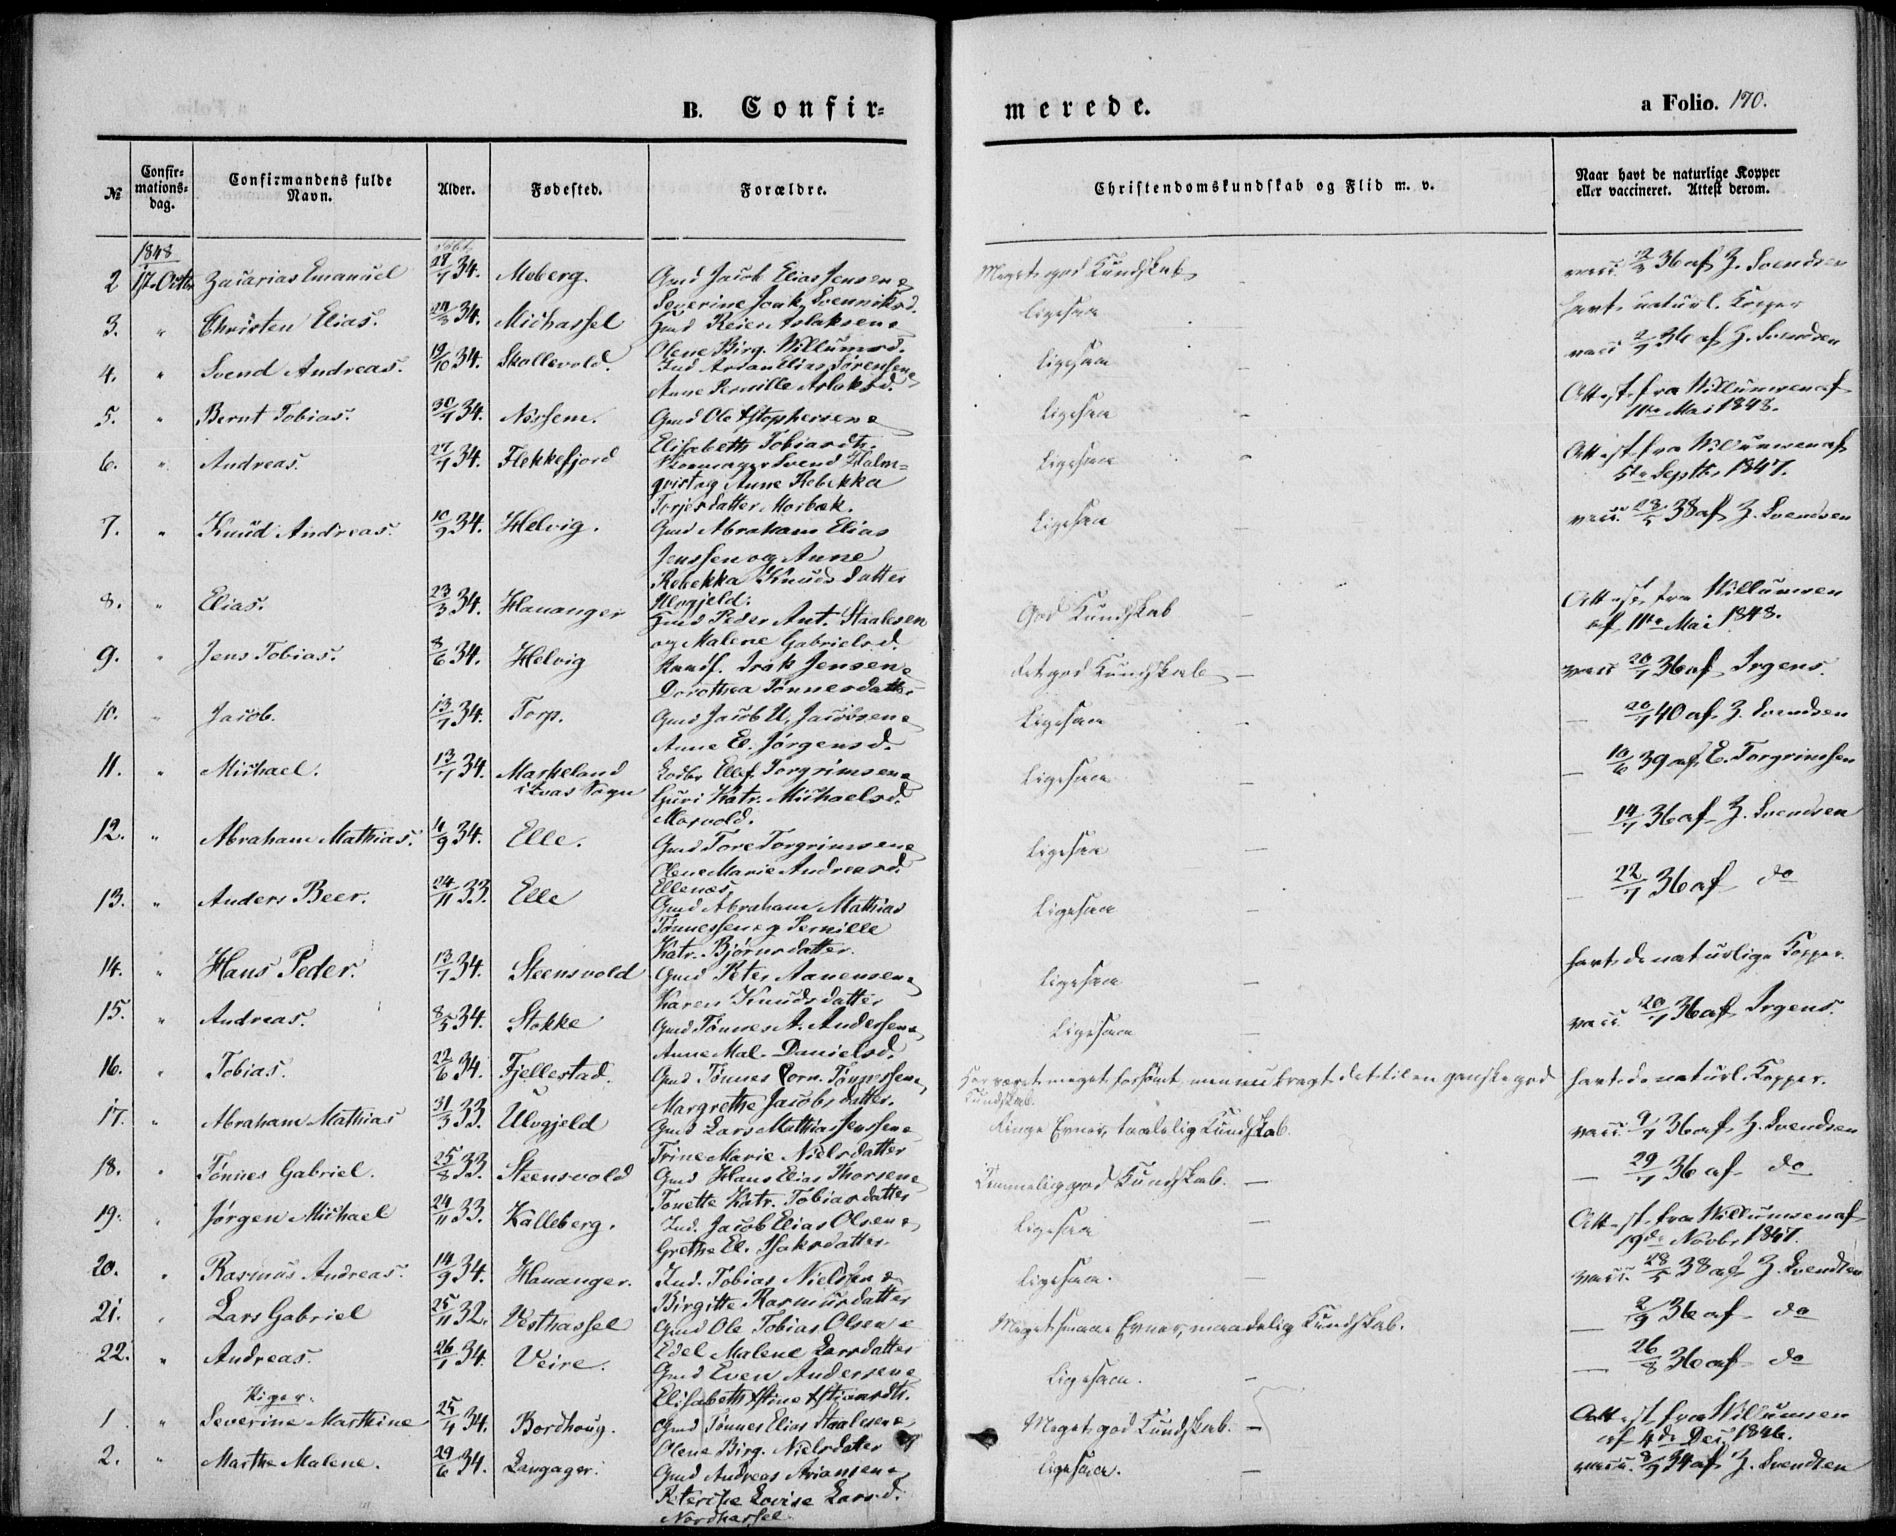 B. Confir-
merede.
a Folio. 170.
№
Confir-
mations-
dag.
Confirmandens fulde
Navn.
Alder.
Fødested.
Forældre.
Christendomskundskab og Flid m. v.
Naar havt de naturlige Kopper
eller vaccineret. Attest derom.
1848
2 17. Octbr Zacarias Emanuel 28/7 34. Moberg. Gmd Jacob Elias Jensen &
Severine Joak. Svenniksd.
Meget god Kundskab
vacc. 36 af Z. Svendsen
3. " Christen Elias. 34. Midhassel Gmd Reier Aslaksen &
Olene Birg. Villumsd.
Ligesaa
havt naturl. Kopper
4. " Svend Andreas. 19/10 34. Skollevold. Ind Adrian Elias Sørensen &
Anne Pernille Aslaksd.
Ligesaa
vacc 36 af Z. Svendsen
5. " Bernt Tobias. 34. Nissem. Gmd Ole Christophersen &
Elisabeth Tobiasdtr.
Ligesaa
Attest fra Willumsen af
11te Mai 1848.
6. " Andreas. 34. Flekkefjord Svend Halm=
qvist og Anne Rebekka
Torjesdatter Morbæk.
Ligesaa
Attest fra Willumsen af
5te Septbr 1847.
7. " Knud Andreas. 10/9 34. Helvig. Gmd Abraham Elias
Jenssen og Anne
Rebekka Knudsdatter
Ulvgjeld.
Ligesaa
vacc. 38 af Z. Svendsen
8. " Elias. 23/3 34. Hananger Gmd Peder Ant. Staalesen
og Malene Gabrielsd.
God Kundskab
Attest fra Willumsen
af 11te Mai 1848.
9. " Jens Tobias. 8/6 34. Helvig Isak Jensen &
Dorothea Tønnesdatter
Ret god Kundskab
vacc 20/7 36 af Irgens.
10. " Jacob. 13/7 34. Torp. Gmd Jacob U. Jacobsen &
Anne El. Jørgensd.
Ligesaa
20/7 40 af Z. Svendsen
11. " Michael. 13/7 34. Maskeland
i Qvas Sogn Ellef Torgrimsen &
Guri Katr. Michaelsd.
Ligesaa
10/6 39 af E. Torgrimsen
12. " Abraham Mathias. 4/9 34. Elle. Gmd Tore Torgrimsen &
Olene Marie Andreasd.
Ellenæs.
Ligesaa
14/7 36 af Z. Svendsen
13. " Anders Beer. 24/11 33. Elle Gmd Abraham Mathias
Tønnessen og Pernille
Katr. Bjørnsdatter.
Ligesaa
22/7 36 af do
14. " Hans Peder. 13/7 34. Steensvold Gmd Peter Aanensen &
Karen Knudsdatter
Ligesaa
havt de naturlige Kopper.
15. " Andreas. 8/5 34. Stokke Gmd Tønnes A. Andersen &
Anne Mal. Danielsd.
Ligesaa
vacc. 20/7 36 af Irgens.
16. " Tobias. 22/6 34. Fjellestad. Gmd Tønnes Corn. Tønnessen &
Margrethe Jacobsdatter.
Har været meget forsømt, men nu bragt det til en ganske god
Kundskab.
havt de naturl. Kopper.
17. " Abraham Mathias 31/3 33. Ulvgjeld Gmd Lars Mathias Jenssen &
Trine Marie Nielsdatter
Ringe Evner, taalelig Kundskab.
vacc. 9/7 36 af Z. Svendsen
18. " Tønnes Gabriel. 25/8 33. Steensvold Gmd Hans Elias Thorsen &
Tonette Katr. Tobiasdatter
Temmelig god Kundskab.
29/7 36 af do
19. " Jørgen Michael 24/11 33. Kalleberg. Ind. Jacob Elias Olsen &
Grethe El. Isaksdatter.
Ligesaa
Attest fra Willumsen af
19de Novbr 1847.
20. " Rasmus Andreas. 14/9 34. Hananger. Ind. Tobias Nielsen &
Birgitte Rasmusdatter
Ligesaa.
vacc. 28/5 38 af Z. Svendsen
21. " Lars Gabriel 25/11 32. Vesthassel Gmd Ole Tobias Olsen &
Edel Malene Larsdatter
Meget smaae Evner, maadelig Kundskab.
36 af do
22. " Andreas. 26/1 34. Veire. Gmd Even Andersen &
Elisabeth Stine
Ligesaa.
26/8 36 af do
Piger.
1. " Severine Marthine 25/4 34. Bordhoug. Gmd Tønnes Elias Staalesen &
Olene Birg. Nielsdatter
Meget god Kundskab.
Attest fra Willumsen
af 4de Dec. 1846.
2. " Marthe Malene. 29/6 34. Langager. Gmd Andreas Ariansen &
Peterike Lovise Larsd.
Nordhassel.
Ligesaa.
vacc. af Z. Svendsen